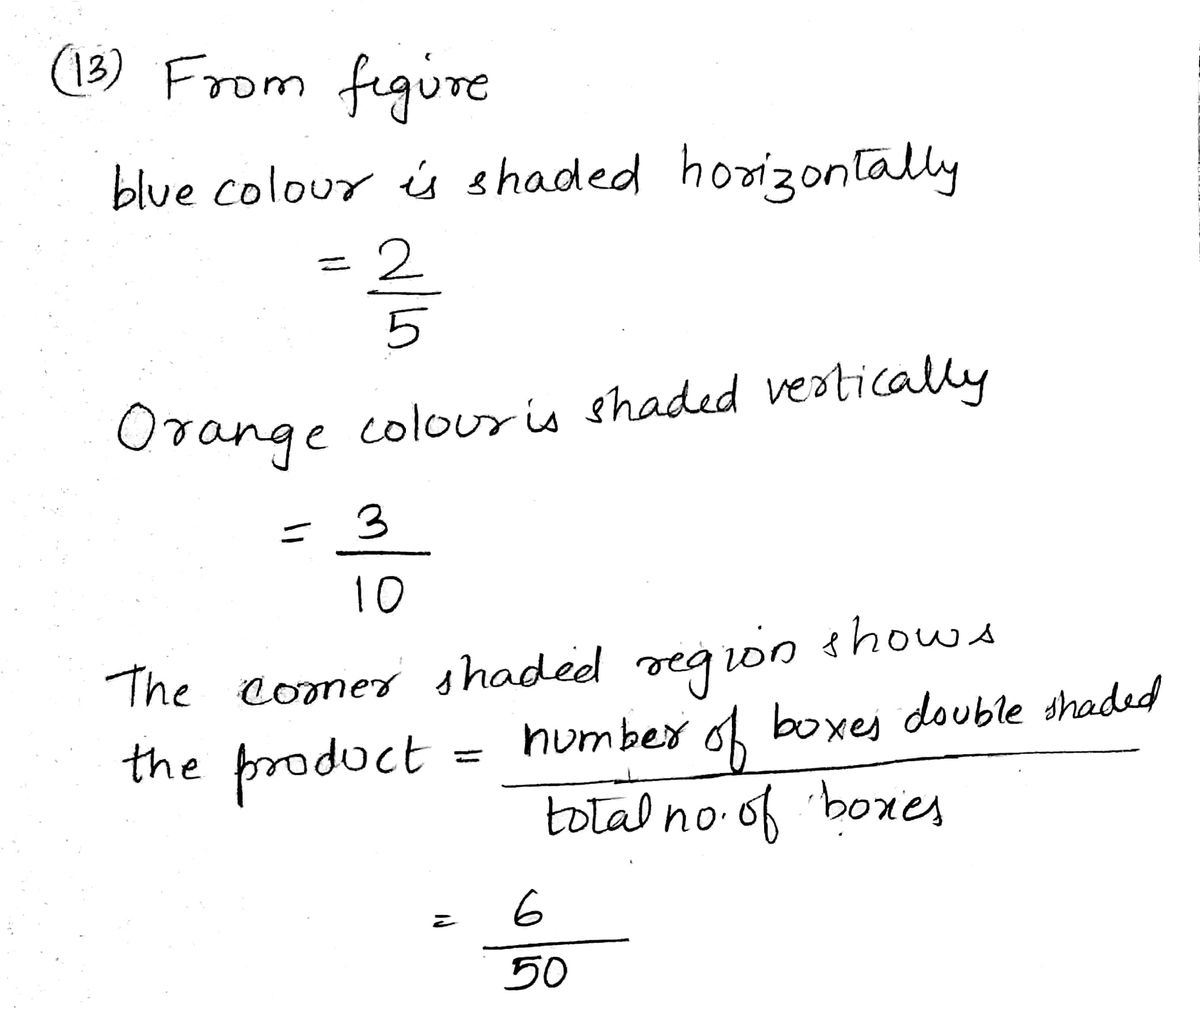 (13) From figure
blue colour is shaded horizontally
= 2/5
Orange colour is shaded vertically
= 3/10
The corner shaded region shows
the product = number of boxes double shaded / total no. of boxes
= 6/50